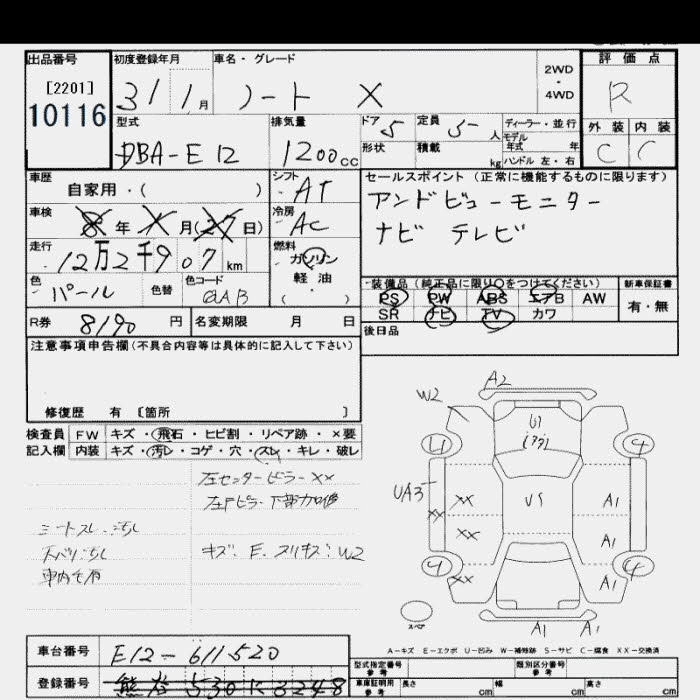 出品番号 初度登録年月 車名・グレード 評価点
[2201] 10116
31/1月 ノート X 2WD・4WD R
型式 排気量 ドア 5 定員 5 人 ディーラー・並行 外装 内装
DBA-E12 1200cc 形状 積載 kg モデル年式 年 ハンドル 左・右 C C
車歴 自家用・( ) シフト AT セールスポイント(正常に機能するものに限ります)
アンドビューモニター
車検 8年X月(27日) 冷房 AC ナビ テレビ
走行 12万2千907km 燃料 ガソリン 軽油 ( )
色 パール 色替 色コード QAB 装備品(純正品に限り〇をつけてください) 新車保証書
PS PW ABS エアB AW 有・無
SR ナビ TV カワ
R券 8190円 名変期限 月 日 後日品
注意事項申告欄(不具合内容等は具体的に記入して下さい)
修復歴 有 〔箇所 〕
検査員 FW キズ・飛石・ヒビ割・リペア跡・×要
記入欄 内装 キズ・汚レ・コゲ・穴・スレ・キレ・破レ
左センターピラーXX
左Fピラー下部加修
シートスレ・汚れ
天バリ汚れ
キズ・E・スリキズ・W2
A2
W2
U1
4 4
UA3 XX
XX US A1
XX A1
4 XX A1 4
スペア
A1 A1
A-キズ E-エクボ U-凹み W-補修跡 S-サビ C-腐食 XX-交換済
車台番号 E12-611520
登録番号 熊谷530に3248
型式指定番号 参考 類別区分番号 参考
車庫証明用 参考 長さ cm 幅 cm 高さ cm